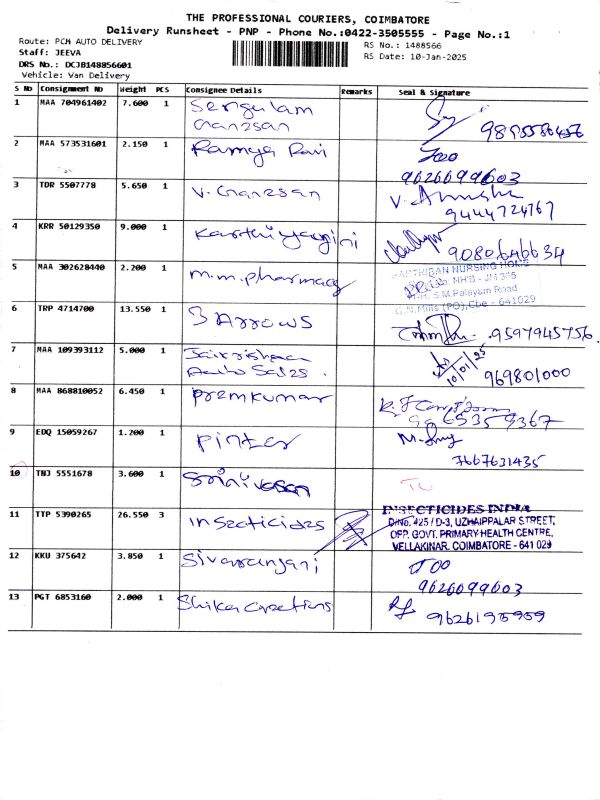 THE PROFESSIONAL COURIERS, COIMBATORE
Delivery Runsheet - PNP - Phone No.:0422-3505555 - Page No.:1
Route: PCM AUTO DELIVERY
RS No.: 1488566
Staff: JEEVA
RS Date: 10-Jan-2025
DRS No.: DCJB148856601
Vehicle: Van Delivery
S No Consignment No Weight PCS Consignee Details Remarks Seal & Signature
1 MAA 704961402 7.600 1 Sengulam
Ganesan
2 MAA 573531601 2.150 1 Ramya Ravi
9626099603
3 TDR 5507778 5.650 1 V. Ganesan V.
9444724767
4 KRR 50129350 9.000 1 Karthiyagini
9080646634
5 MAA 302628440 2.200 1 m.m.pharmacy
PARTHIBAN NURSING HOME
S.M.Palayam Road
G.N.Mills (PO),Cbe - 641029
6 TRP 4714700 13.550 1 3 Arrows
9597945756
7 MAA 109393112 5.000 1 Jaikrishnaa
Auto Sales
10/01/25
969801000
8 MAA 868810052 6.450 1 premkumar
9
9 EDQ 15059267 1.200 1 pinter
7667631435
10 TNJ 5551678 3.600 1 Srinivasan
11 TTP 5390265 26.550 3 insecticides
INSECTICIDES INDIA
D.No. 425 / D-3, UZHAIPPALAR STREET,
OPP. GOVT. PRIMARY HEALTH CENTRE,
VELLAKINAR, COIMBATORE - 641 029
12 KKU 375642 3.850 1 Sivaranjani
9626099603
13 PGT 6853160 2.000 1 Shika Creations
9626195959